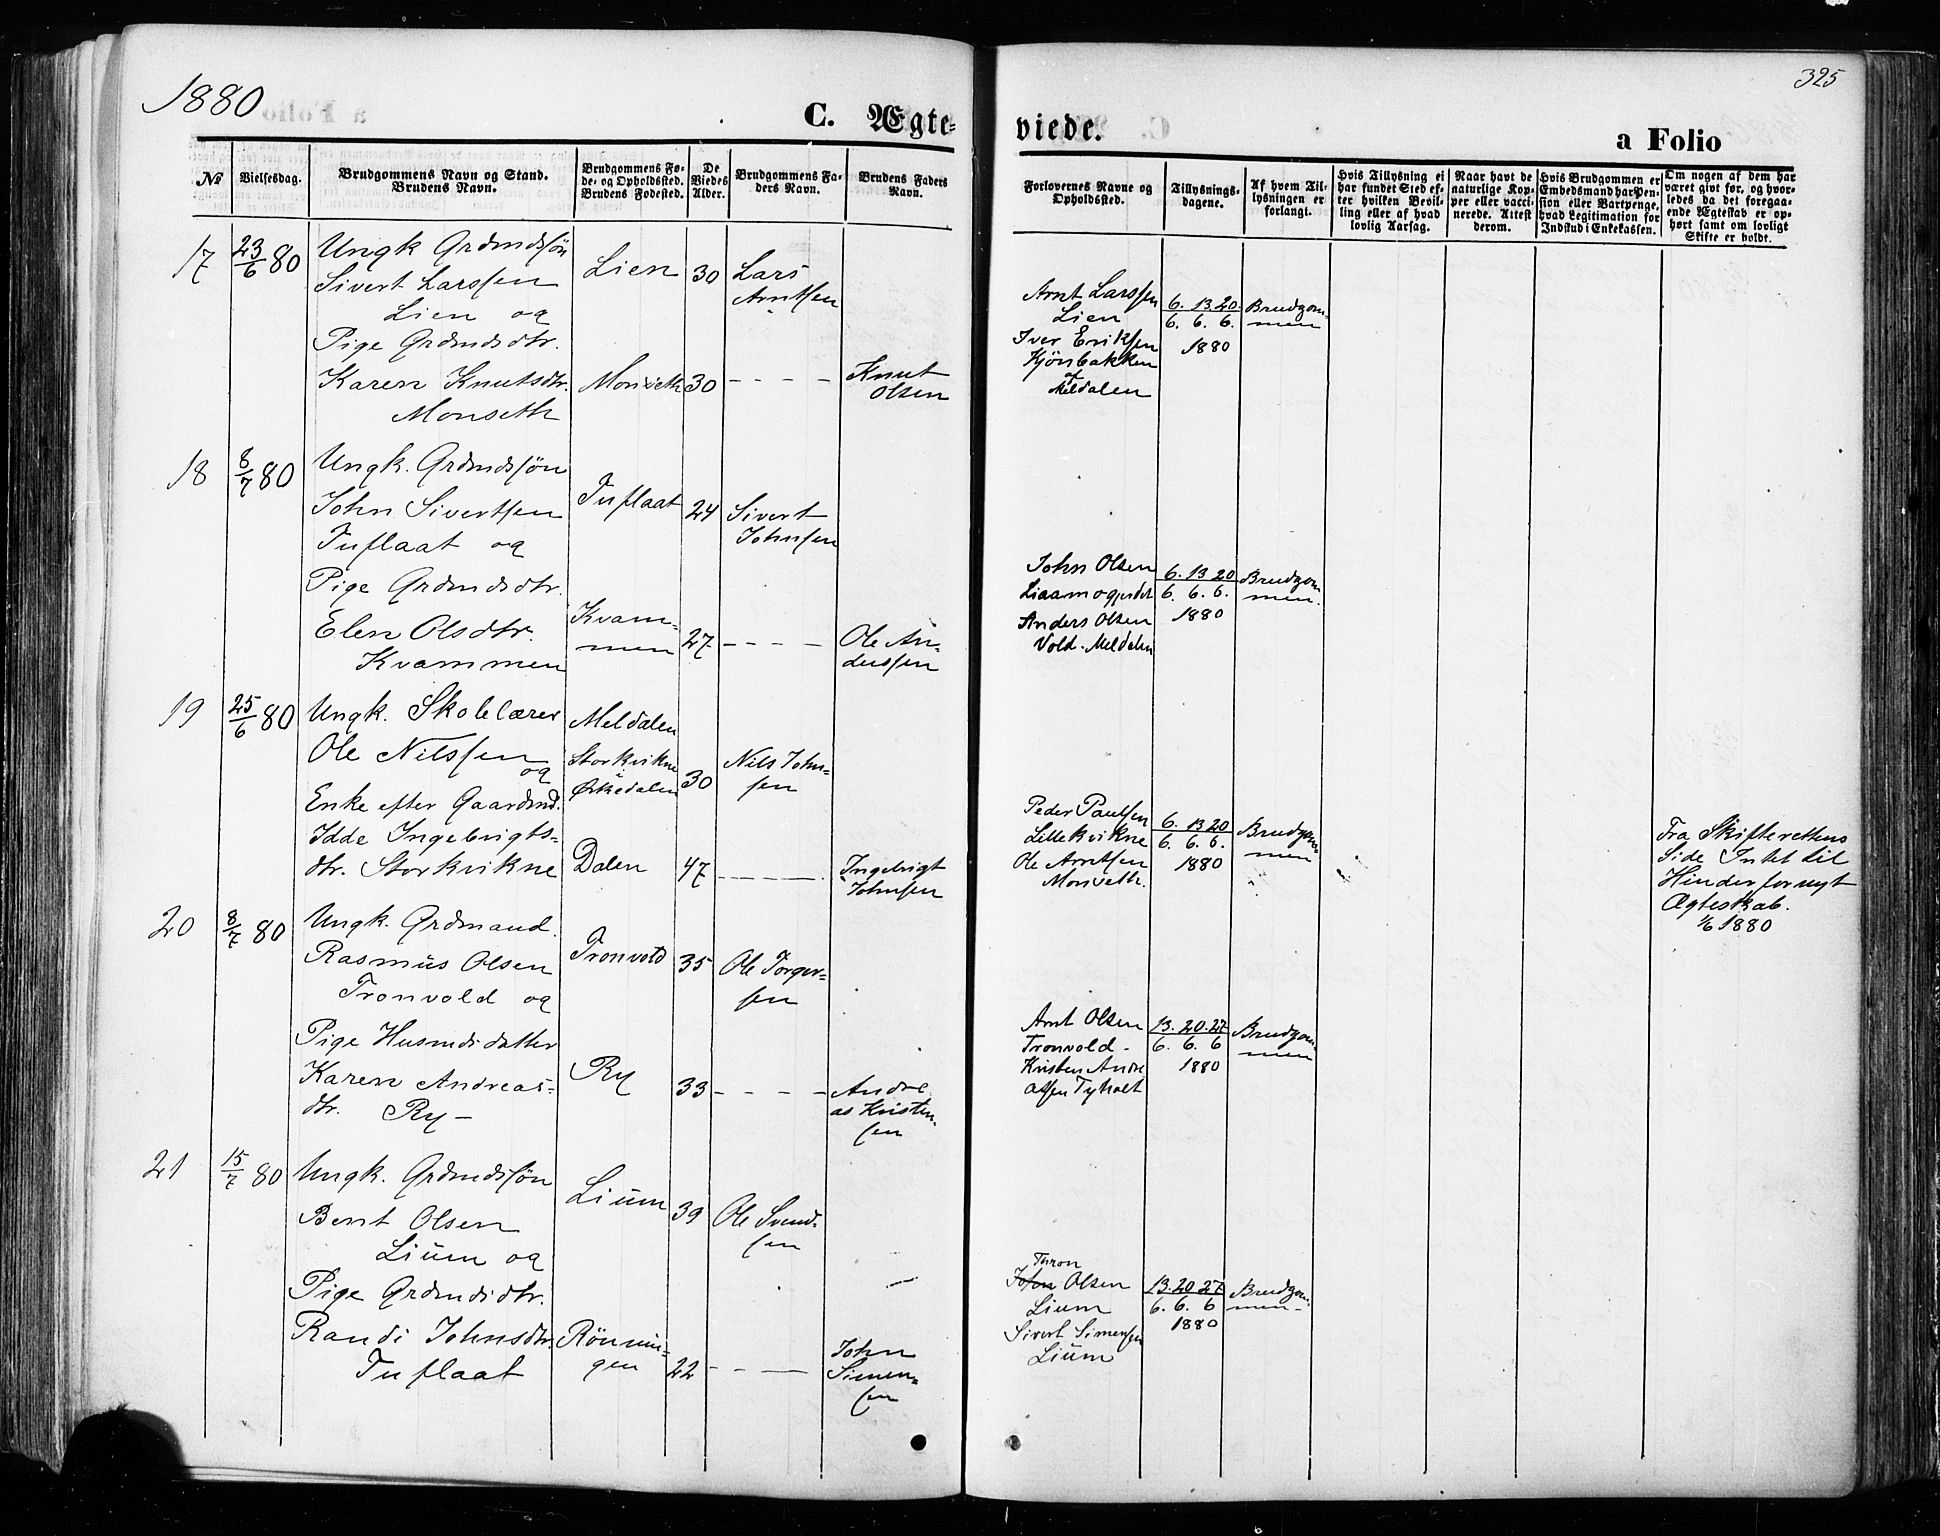 1880
325
C. Ægte-
viede.
a Folio
№
Vielsesdag.
Brudgommens Navn og Stand.
Brudens Navn.
Brudgommens Fø-
de- og Opholdssted.
Brudens Fødested.
De
Viedes
Alder.
Brudgommens Fa-
ders Navn.
Brudens Faders
Navn.
Forlovernes Navne og
Opholdssted.
Tillysnings-
dagene.
Af hvem Til-
lysningen er
forlangt.
Hvis Tillysning ei
har fundet Sted ef-
ter hvilken Bevil-
ling eller af hvad
lovlig Aarsag.
Naar havt de
naturlige Kop-
per eller vacci-
nerede. Attest
derom.
Hvis Brudgommen er
Embedsmand har Pen-
sion eller Vartpenge,
hvad Legitimation for
Indskud i Enkekassen.
Om nogen af dem har
været givt før, og hvor-
ledes da det foregaa-
ende Ægteskab er op-
hørt samt om lovligt
Skifte er holdt.
17 23/6 80
Ungk Grdmdssön
Sivert Larssen
Lien og
Lien 30 Lars
Arntsen
Pige Grdmdsdtr.
Karen Knutsdtr.
Monseth
Monseth 30 - - - - Knut
Olsen
Arnt Larssen
Lien
Iver Eriksen
Kjönbakken
af
Meldalen
6. 13 20.
6. 6. 6.
1880
Brudgom-
men
18 8/7 80
Ungk. Grdmdssön
John Sivertsen
Tuflaat og
Tuflaat 24 Sivert
Johnsen
Pige Grdmdsdtr.
Elen Olsdtr.
Kvammen
Kvam-
men 27 - - - - Ole An-
derssen
John Olsen
Anders Olsen
Vold. Meldalen
6. 13 20
6. 6. 6.
1880
Brudgom
men.
19 25/6 80
Ungk. Skolelærer
Ole Nilssen
og
Meldalen
Storkvikne
i
Ørkedalen
30 Nils John-
sen
Enke efter Gaardmd.
Idde Ingebrigts-
dtr. Storkvikne
Dalen 47 - - - - Ingebrigt
Johnsen
Peder Paulsen
Lillekvikne
Ole Arntsen
Monseth.
6. 13 20
6. 6. 6.
1880
Brudgom-
men
Fra Skifterettens
Side Intet til
Hinder for nyt
Ægteskab.
1/6 1880
20 8/7 80
Ungk. Grdmand.
Rasmus Olsen
Tronvold og
Tronvold 35 Ole Torger-
sen
Pige Husmdsdatter
Karen Andreas-
dtr. Ry -
Ry 33 - - - - Andre
as Kristen-
sen
Arnt Olsen
Tronvold -
Kristen Andre
assen Tyholt
13. 20. 27
6. 6. 6
1880
Brudgom-
men
21 15/7 80
Ungk. Grdmdssön
Bent Olsen
Lium og
Lium 39 Ole Svend-
sen
Pige Grdmdsdtr.
Randi Johnsdtr.
Tuflaat
Rönnin-
gen 22 - - - John
Simen-
sen
Thron
John Olsen
Lium
Sivert Simensen
Lium
13. 20 27
6. 6. 6
1880
Brudgom-
men -